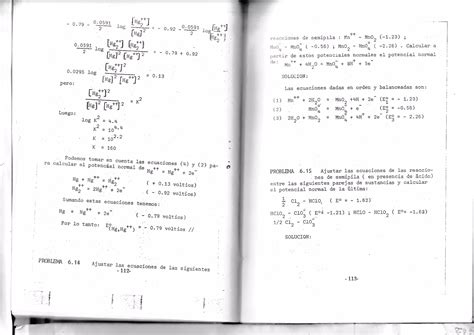 - 0.79 - 0.0591/2 log [Hg2++]/[Hg]2 = - 0.92 - 0.0591/2 log
0.0591/2 log [Hg2++] [Hg2++]/[Hg]2 [Hg++]2 = - 0.79 + 0.92
0.0295 log [Hg2++]2/[Hg]2 [Hg++]2 = 0.13
pero:
[Hg2++]2/[Hg]2 [Hg++]2 = K2
Luego:
log K2 = 4.4
K2 = 10 4.4
K = 10 2.2
K = 160
Podemos tomar en cuenta las ecuaciones (4) y (2) pa-
ra calcular el potencial normal de Hg++ → Hg++ + 2e-
Hg + Hg++ = Hg2++ ( + 0.13 voltios)
Hg2++ = 2Hg++ + 2e- ( - 0.92 voltios)
Sumando estas ecuaciones tenemos:
Hg = Hg++ + 2e- ( - 0.79 voltios)
Por lo tanto: E°(Hg,Hg++) = - 0.79 voltios //
PROBLEMA 6.14 Ajustar las ecuaciones de las siguientes
-112-
reacciones de semipila : Mn++ - MnO2 (-1.23) ;
MnO4= - MnO4- ( -0.56) ; MnO2 - MnO4= ( -2.26) . Calcular a
partir de estos potenciales normales el potencial normal
de: Mn++ + 4H2O = MnO4- + 8H+ + 5e-
SOLUCION:
Las ecuaciones dadas en orden y balanceadas son:
(1) Mn++ + 2H2O = MnO2 +4H + 2e- (E°1 = - 1.23)
(2) MnO4= = MnO4- + e- (E°2 = -0.56)
(3) 2H2O + MnO2 = MnO4= + 4H+ + 2e- (E°3 = - 2.26)
PROBLEMA 6.15 Ajustar las ecuaciones de las reaccio-
nes de semipila ( en presencia de ácido)
entre las siguientes parejas de sustancias y calcular
el potencial normal de la última:
1/2 Cl2 - HClO ( E° = - 1.63)
HClO2 - ClO3- ( E° = -1.21) ; HClO - HClO2 ( E° = -1.63)
1/2 Cl2 - ClO3-
SOLUCION:
-113-